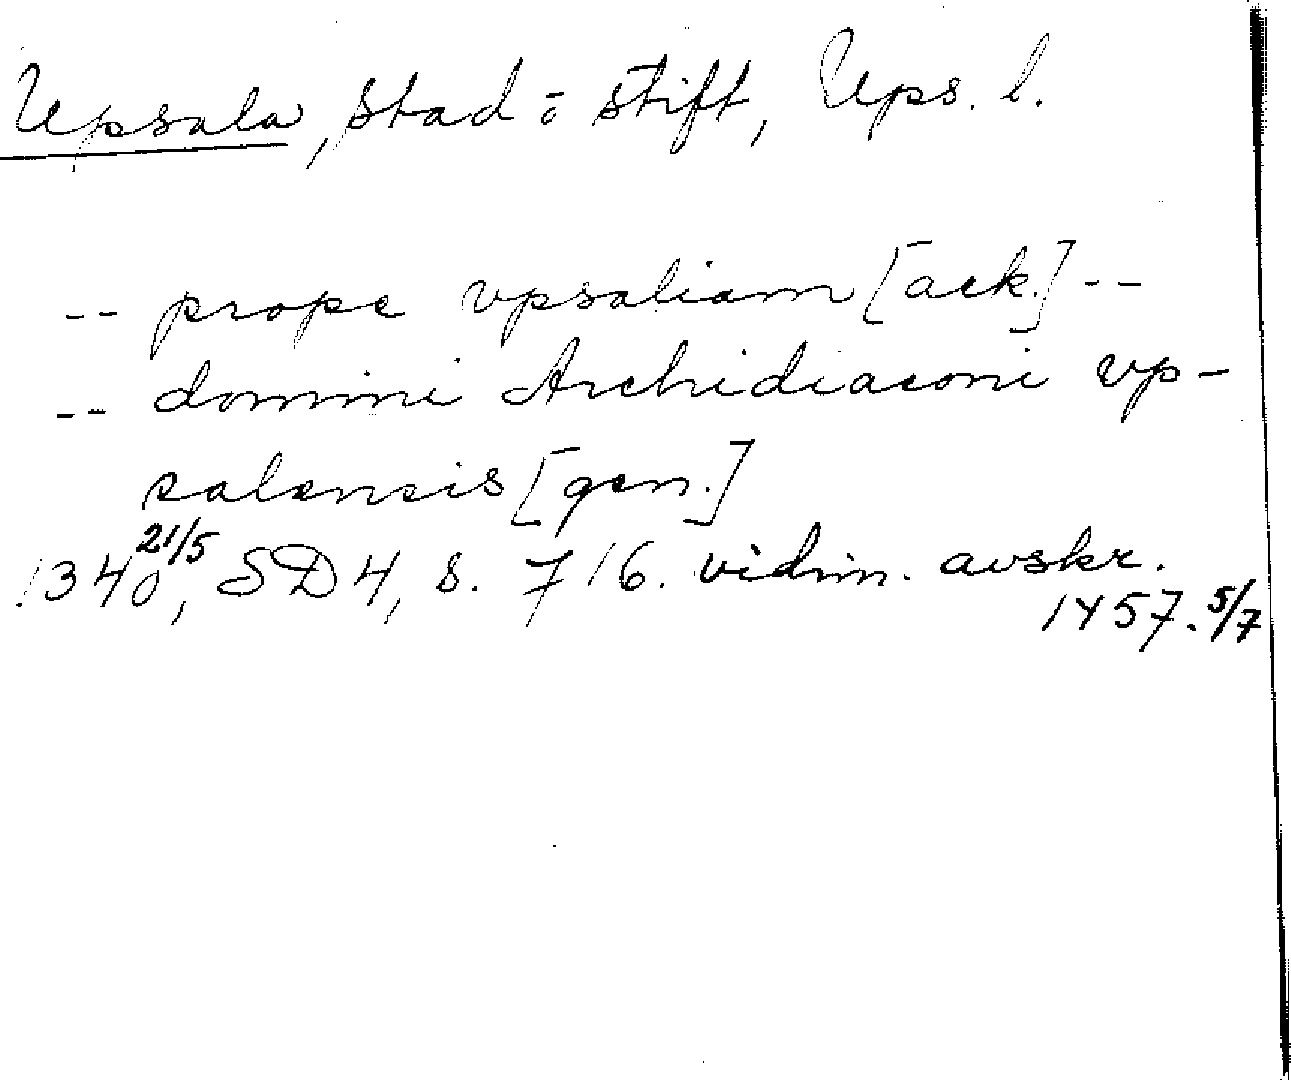 Upsala, stad o stift, Ups. l.
-- prope vpsaliam [ack.] --
-- domini Archidiaconi vp-
salensis [gen.]
1340 21/5, SD 4, s. 716. vidim. avskr.
1457. 5/7